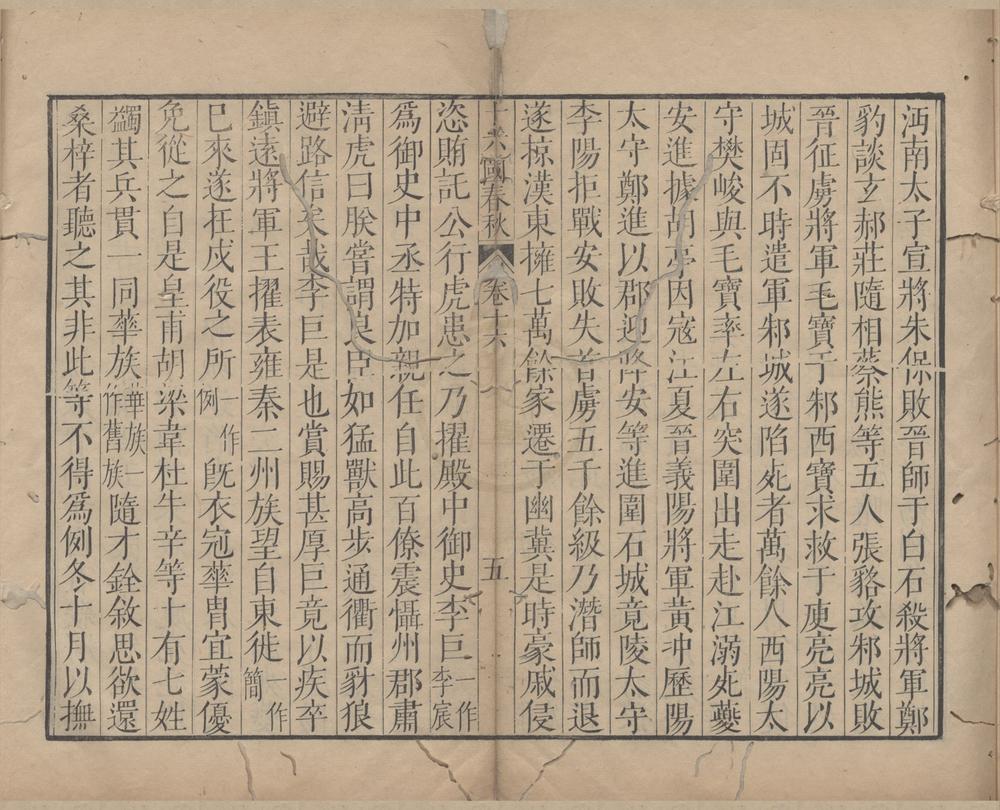 沔南太子宣將朱保敗晉師于白石殺將軍鄭
豹談玄郝莊隨相蔡熊等五人張貉攻邾城敗
晉征虜將軍毛寶于邾西寶求救于庾亮亮以
城固不時遣軍邾城遂陷死者萬餘人西陽太
守樊峻與毛寶率左右突圍出走赴江溺死夔
安進據胡亭因寇江夏晉義陽將軍黃冲歷陽
太守鄭進以郡迎降安等進圍石城竟陵太守
李陽拒戰安敗失首虜五千餘級乃潛師而退
遂掠漢東擁七萬餘家遷于幽冀是時豪戚侵
十六國春秋 卷十六 五
恣賄託公行虎患之乃擢殿中御史李巨一作李宸
爲御史中丞特加親任自此百僚震懾州郡肅
淸虎曰朕嘗謂良臣如猛獸高步通衢而豺狼
避路信矣哉李巨是也賞賜甚厚巨竟以疾卒
鎭遠將軍王擢表雍秦二州族望自東徙一作簡
巳來遂在戍役之所一作例旣衣冠華胄宜蒙優
免從之自是皇甫胡梁韋杜牛辛等十有七姓
蠲其兵貫一同華族華族一作舊族隨才銓敘思欲還
桑梓者聽之其非此等不得爲例冬十月以撫